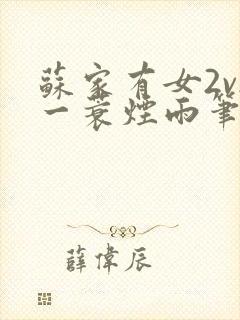 蘇家有女2v
一蓑煙雨筆
薛偉辰